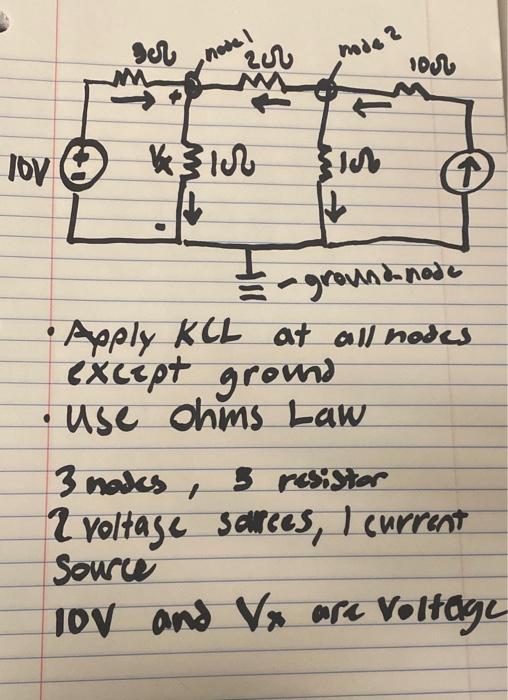 3Ω node1 2Ω node2 10Ω
10V + - + Vx 1Ω - 1Ω
- ground node
• Apply KCL at all nodes
except ground
• Use Ohms Law
3 nodes, 5 resistor
2 voltage sources, 1 current
Source
10V and Vx are Voltage